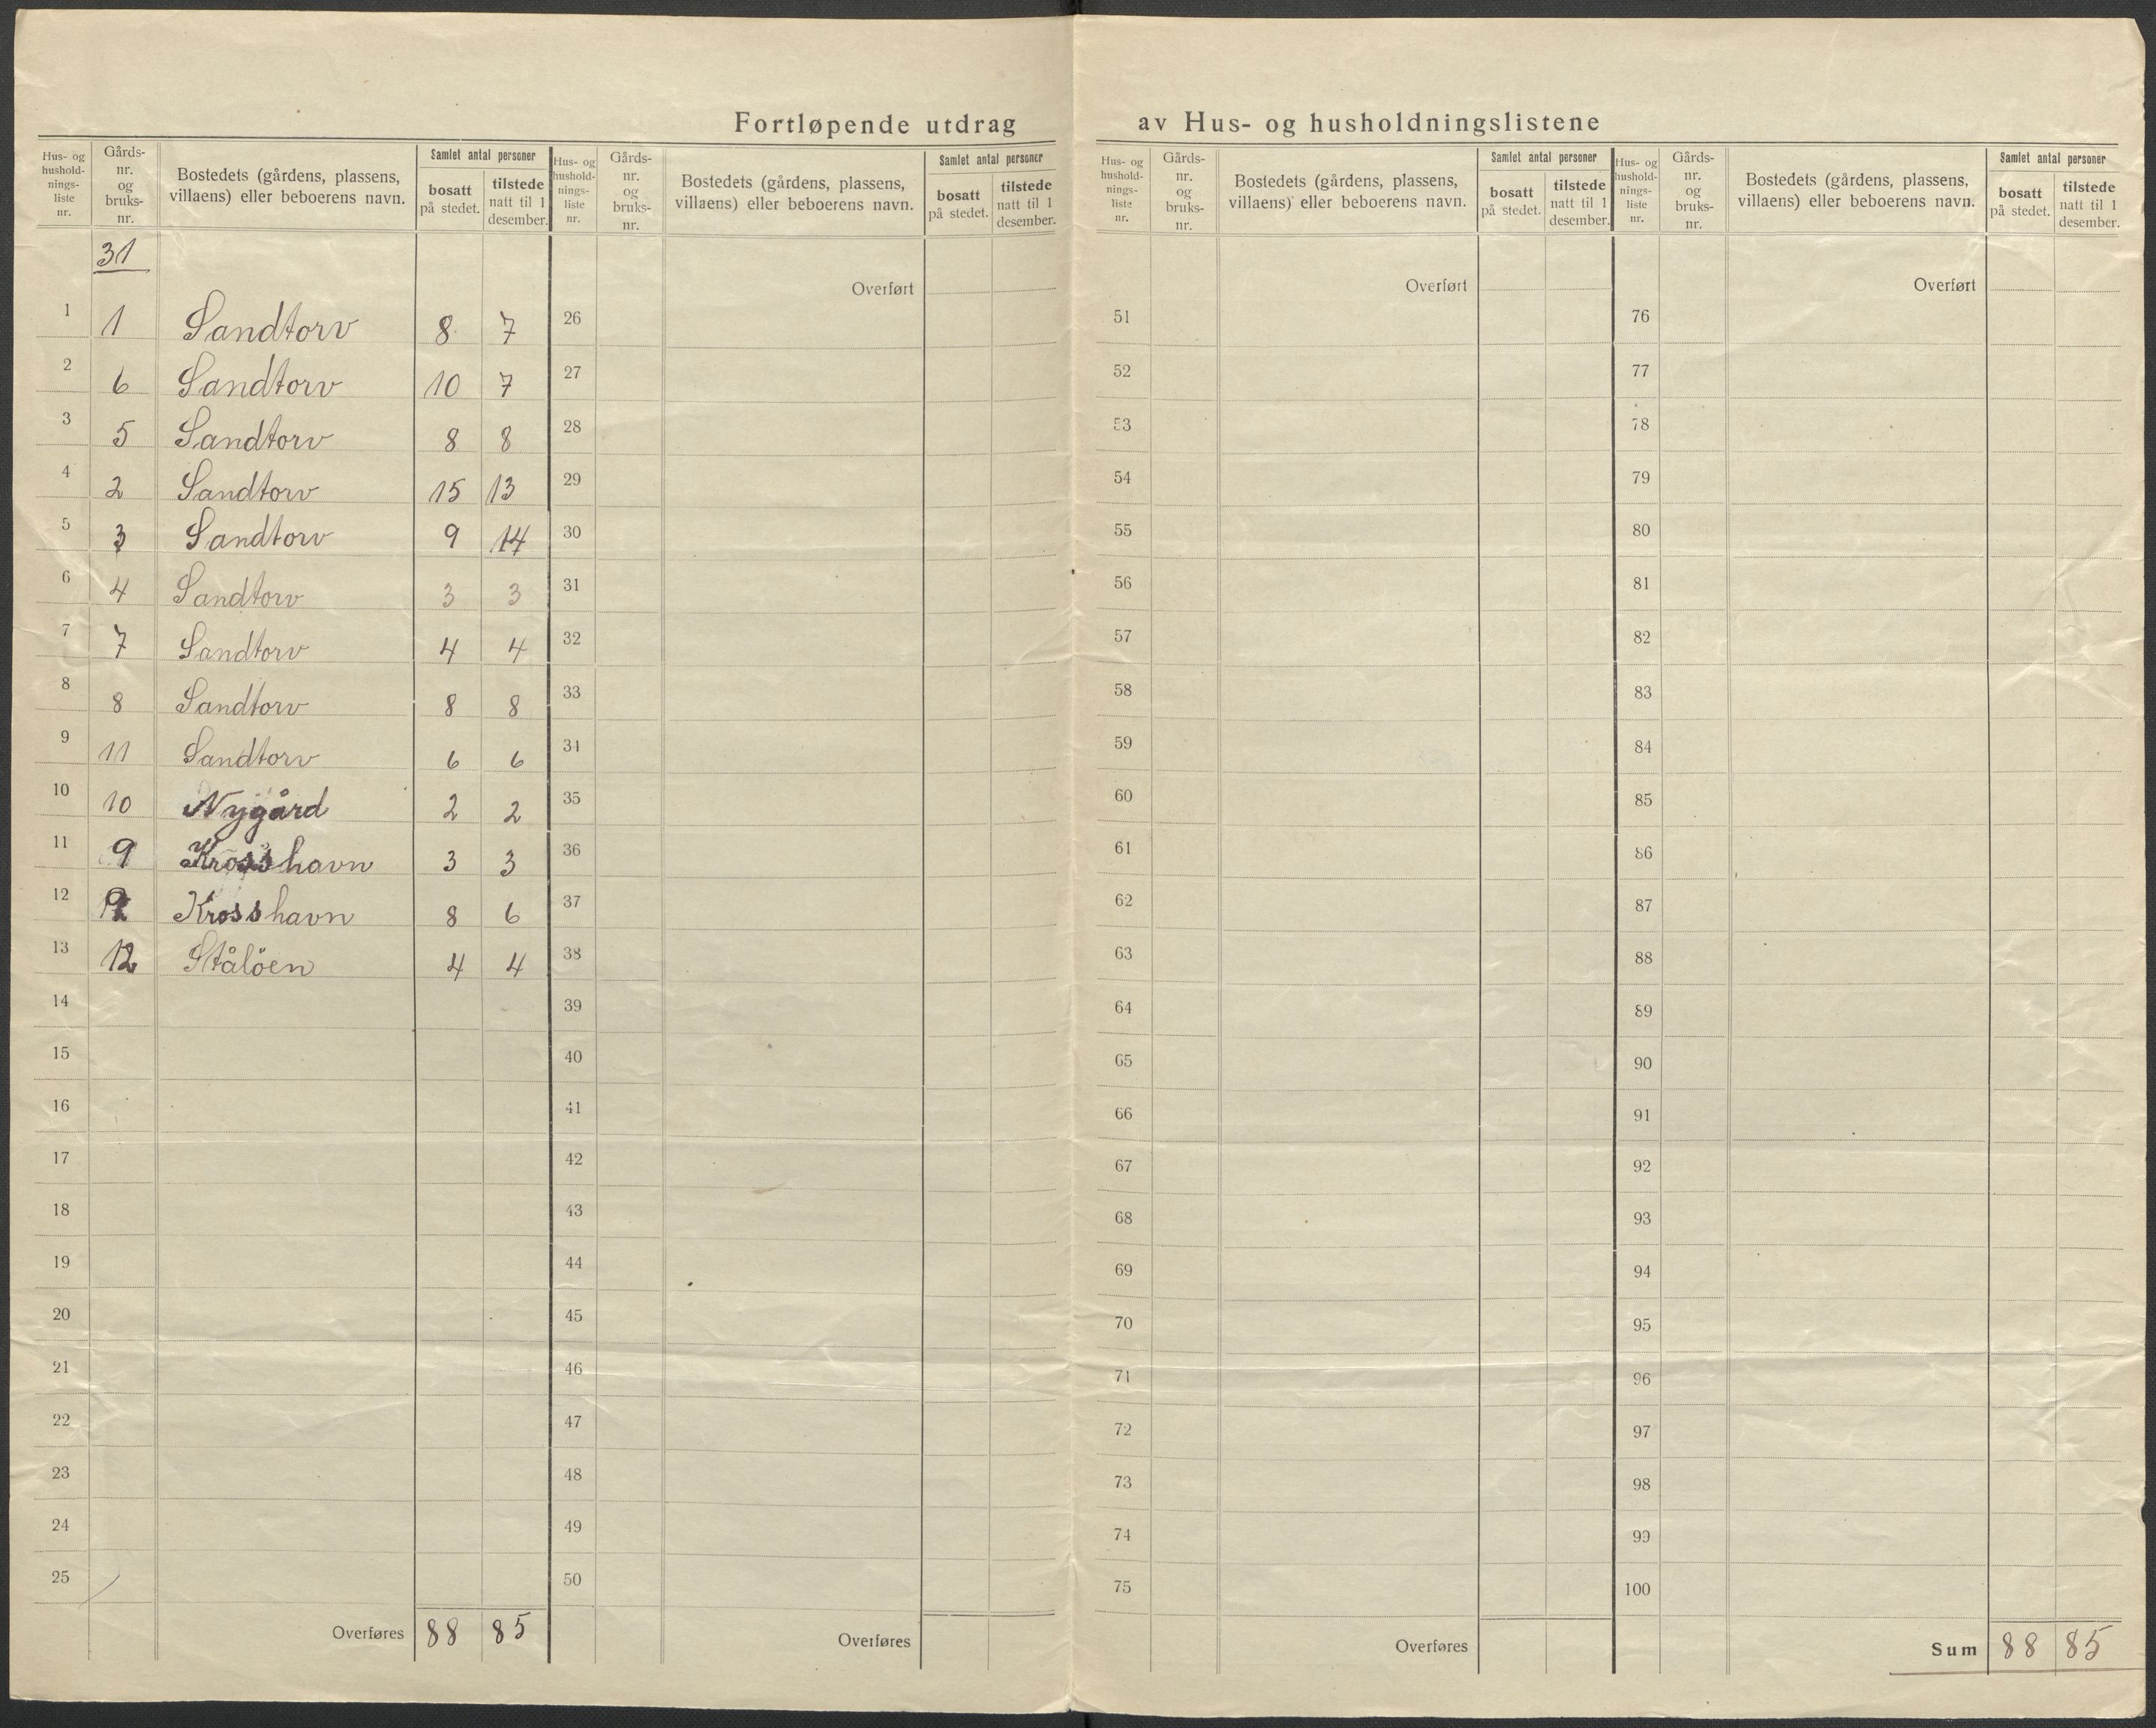 Fortløpende utdrag av Hus- og husholdningslistene
Hus- og hushold-nings-liste nr. Gårds-nr. og bruks-nr. Bostedets (gårdens, plassens, villaens) eller beboerens navn. Samlet antal personer bosatt på stedet. tilstede natt til 1 desember.
31
1 1 Sandtorv 8 7
2 6 Sandtorv 10 7
3 5 Sandtorv 8 8
4 2 Sandtorv 15 13
5 3 Sandtorv 9 14
6 4 Sandtorv 3 3
7 7 Sandtorv 4 4
8 8 Sandtorv 8 8
9 11 Sandtorv 6 6
10 10 Nygård 2 2
11 9 Krosshavn 3 3
12 9 Krosshavn 8 6
13 12 Ståløen 4 4
14
15
16
17
18
19
20
21
22
23
24
25
Overføres 88 85
Hus- og hushold-nings-liste nr. Gårds-nr. og bruks-nr. Bostedets (gårdens, plassens, villaens) eller beboerens navn. Samlet antal personer bosatt på stedet. tilstede natt til 1 desember.
Overført
26
27
28
29
30
31
32
33
34
35
36
37
38
39
40
41
42
43
44
45
46
47
48
49
50
Overføres
Hus- og hushold-nings-liste nr. Gårds-nr. og bruks-nr. Bostedets (gårdens, plassens, villaens) eller beboerens navn. Samlet antal personer bosatt på stedet. tilstede natt til 1 desember.
Overført
51
52
53
54
55
56
57
58
59
60
61
62
63
64
65
66
67
68
69
70
71
72
73
74
75
Overføres
Hus- og hushold-nings-liste nr. Gårds-nr. og bruks-nr. Bostedets (gårdens, plassens, villaens) eller beboerens navn. Samlet antal personer bosatt på stedet. tilstede natt til 1 desember.
Overført
76
77
78
79
80
81
82
83
84
85
86
87
88
89
90
91
92
93
94
95
96
97
98
99
100
Sum 88 85